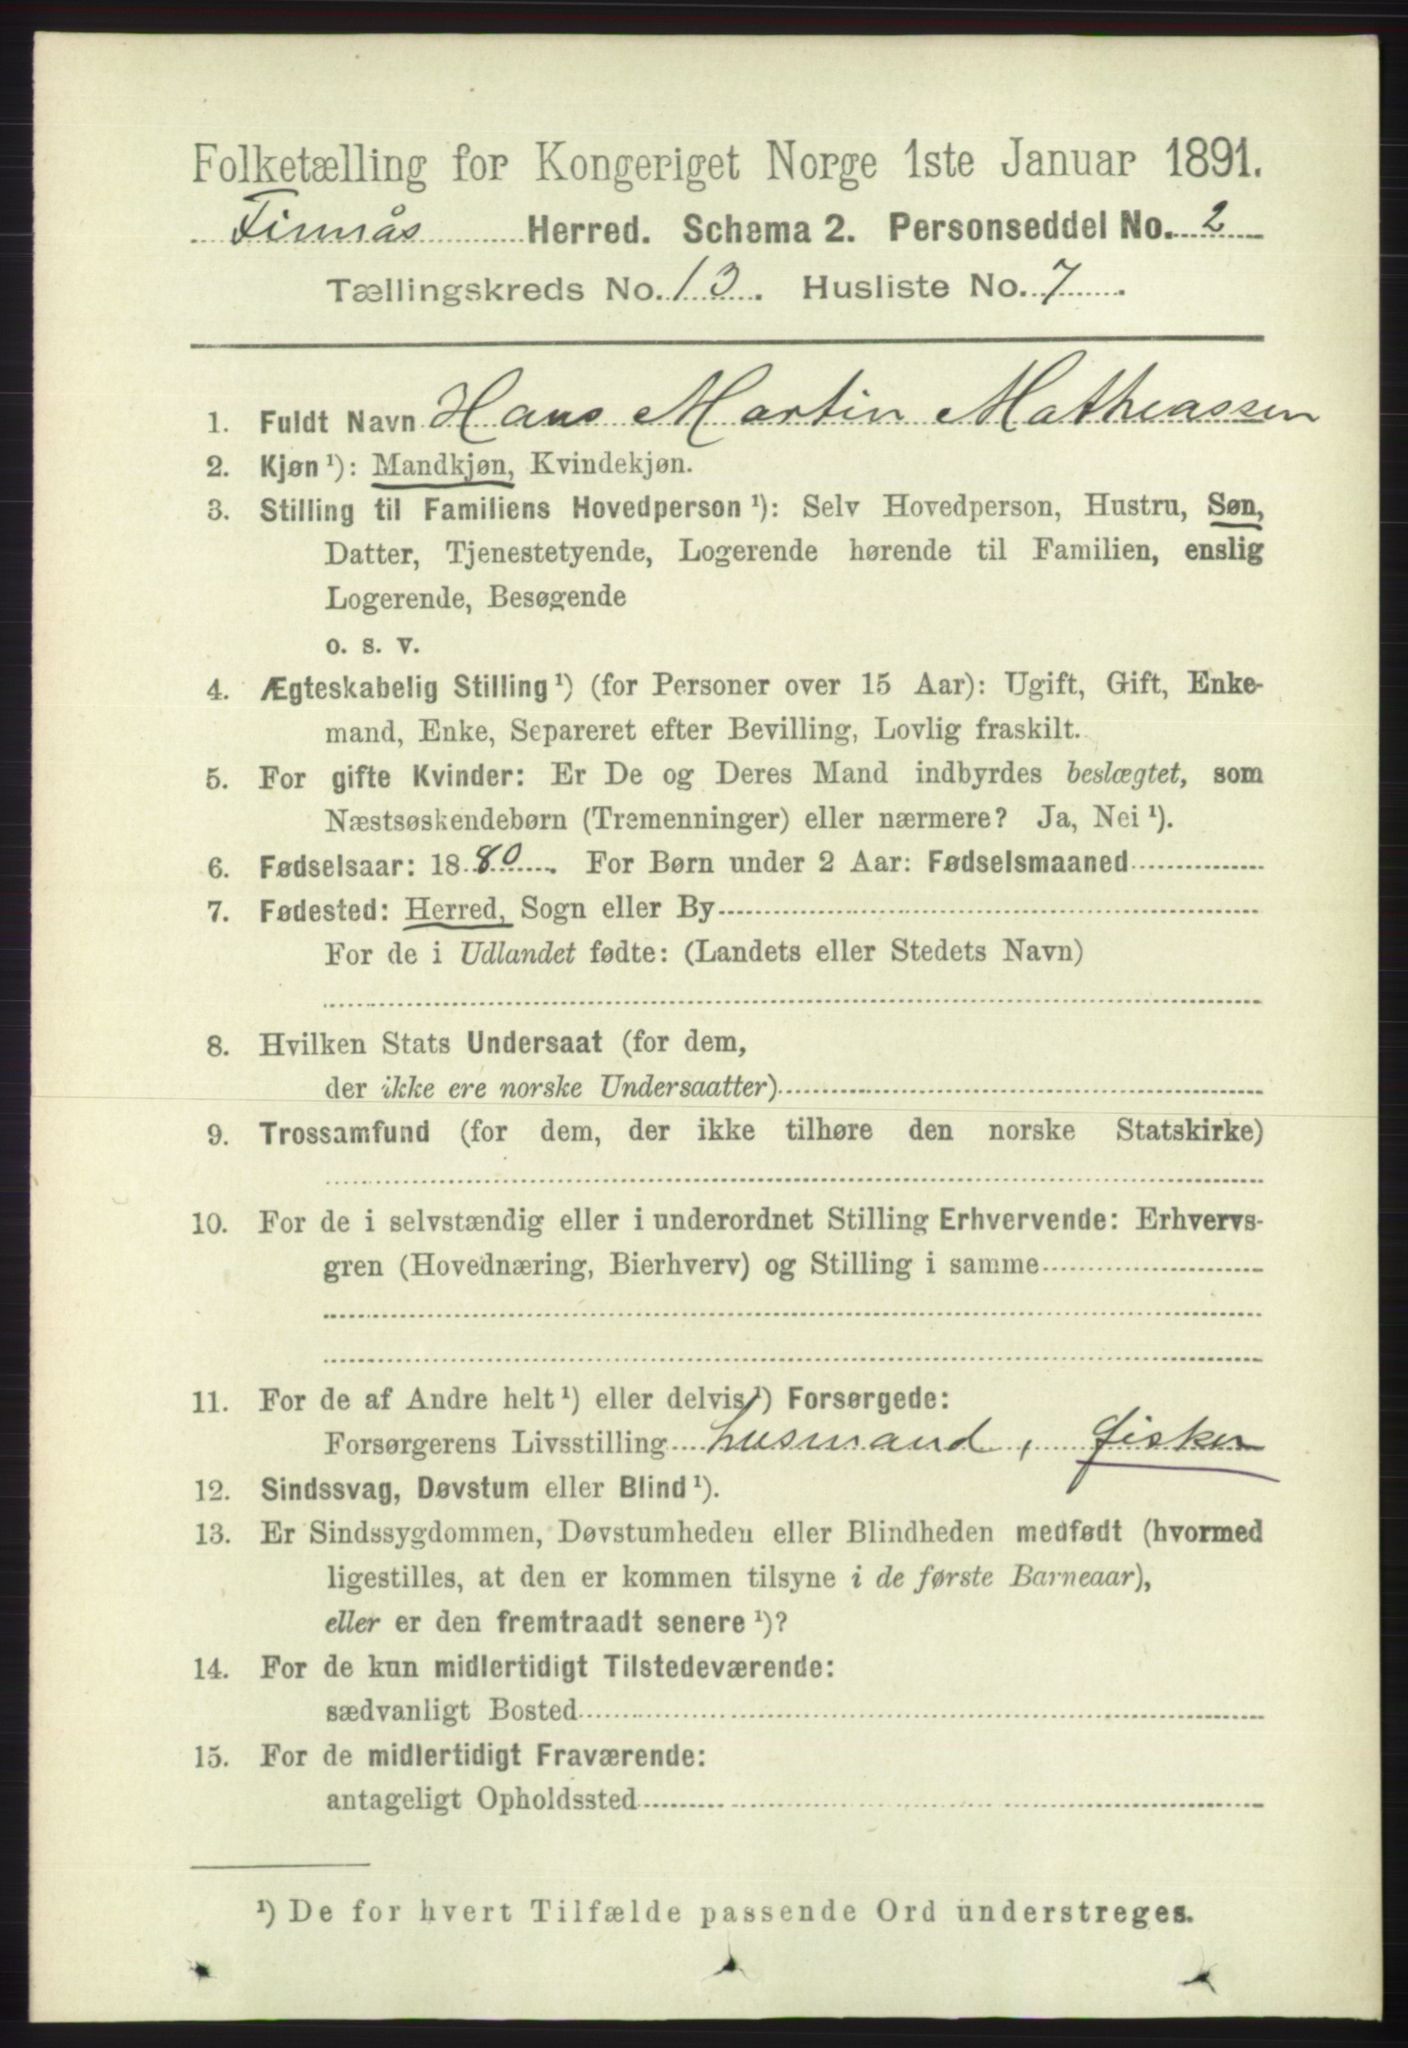 Folketælling for Kongeriget Norge 1ste Januar 1891.
Finnås Herred. Schema 2. Personseddel No. 2
Tællingskreds No. 13. Husliste No. 7.
1. Fuldt Navn Hans Martin Matheassen
2. Kjøn¹): Mandkjøn, Kvindekjøn.
3. Stilling til Familiens Hovedperson¹): Selv Hovedperson, Hustru, Søn,
Datter, Tjenestetyende, Logerende hørende til Familien, enslig
Logerende, Besøgende
o. s. v.
4. Ægteskabelig Stilling¹) (for Personer over 15 Aar): Ugift, Gift, Enke-
mand, Enke, Separeret efter Bevilling, Lovlig fraskilt.
5. For gifte Kvinder: Er De og Deres Mand indbyrdes beslægtet, som
Næstsøskendebørn (Tremenninger) eller nærmere? Ja, Nei¹).
6. Fødselsaar: 1880. For Børn under 2 Aar: Fødselsmaaned
7. Fødested: Herred, Sogn eller By
For de i Udlandet fødte: (Landets eller Stedets Navn)
8. Hvilken Stats Undersaat (for dem,
der ikke ere norske Undersaatter)
9. Trossamfund (for dem, der ikke tilhøre den norske Statskirke)
10. For de i selvstændig eller i underordnet Stilling Erhvervende: Erhvervs-
gren (Hovednæring, Bierhverv) og Stilling i samme
11. For de af Andre helt¹) eller delvis¹) Forsørgede:
Forsørgerens Livsstilling husmand, fisker
12. Sindssvag, Døvstum eller Blind¹).
13. Er Sindssygdommen, Døvstumheden eller Blindheden medfødt (hvormed
ligestilles, at den er kommen tilsyne i de første Barneaar),
eller er den fremtraadt senere¹)?
14. For de kun midlertidigt Tilstedeværende:
sædvanligt Bosted
15. For de midlertidigt Fraværende:
antageligt Opholdssted
¹) De for hvert Tilfælde passende Ord understreges.